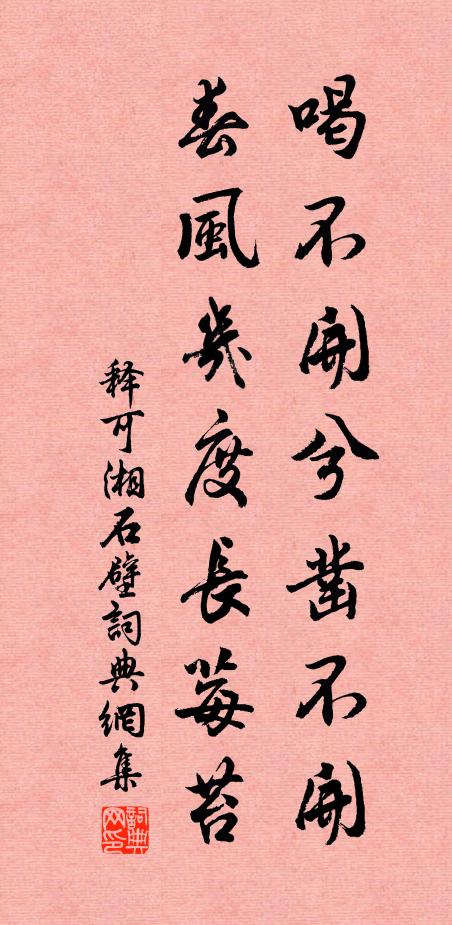 喝不開兮凿不開
春風幾度長莓苔
释可湘石壁詞典網集
詞典网印